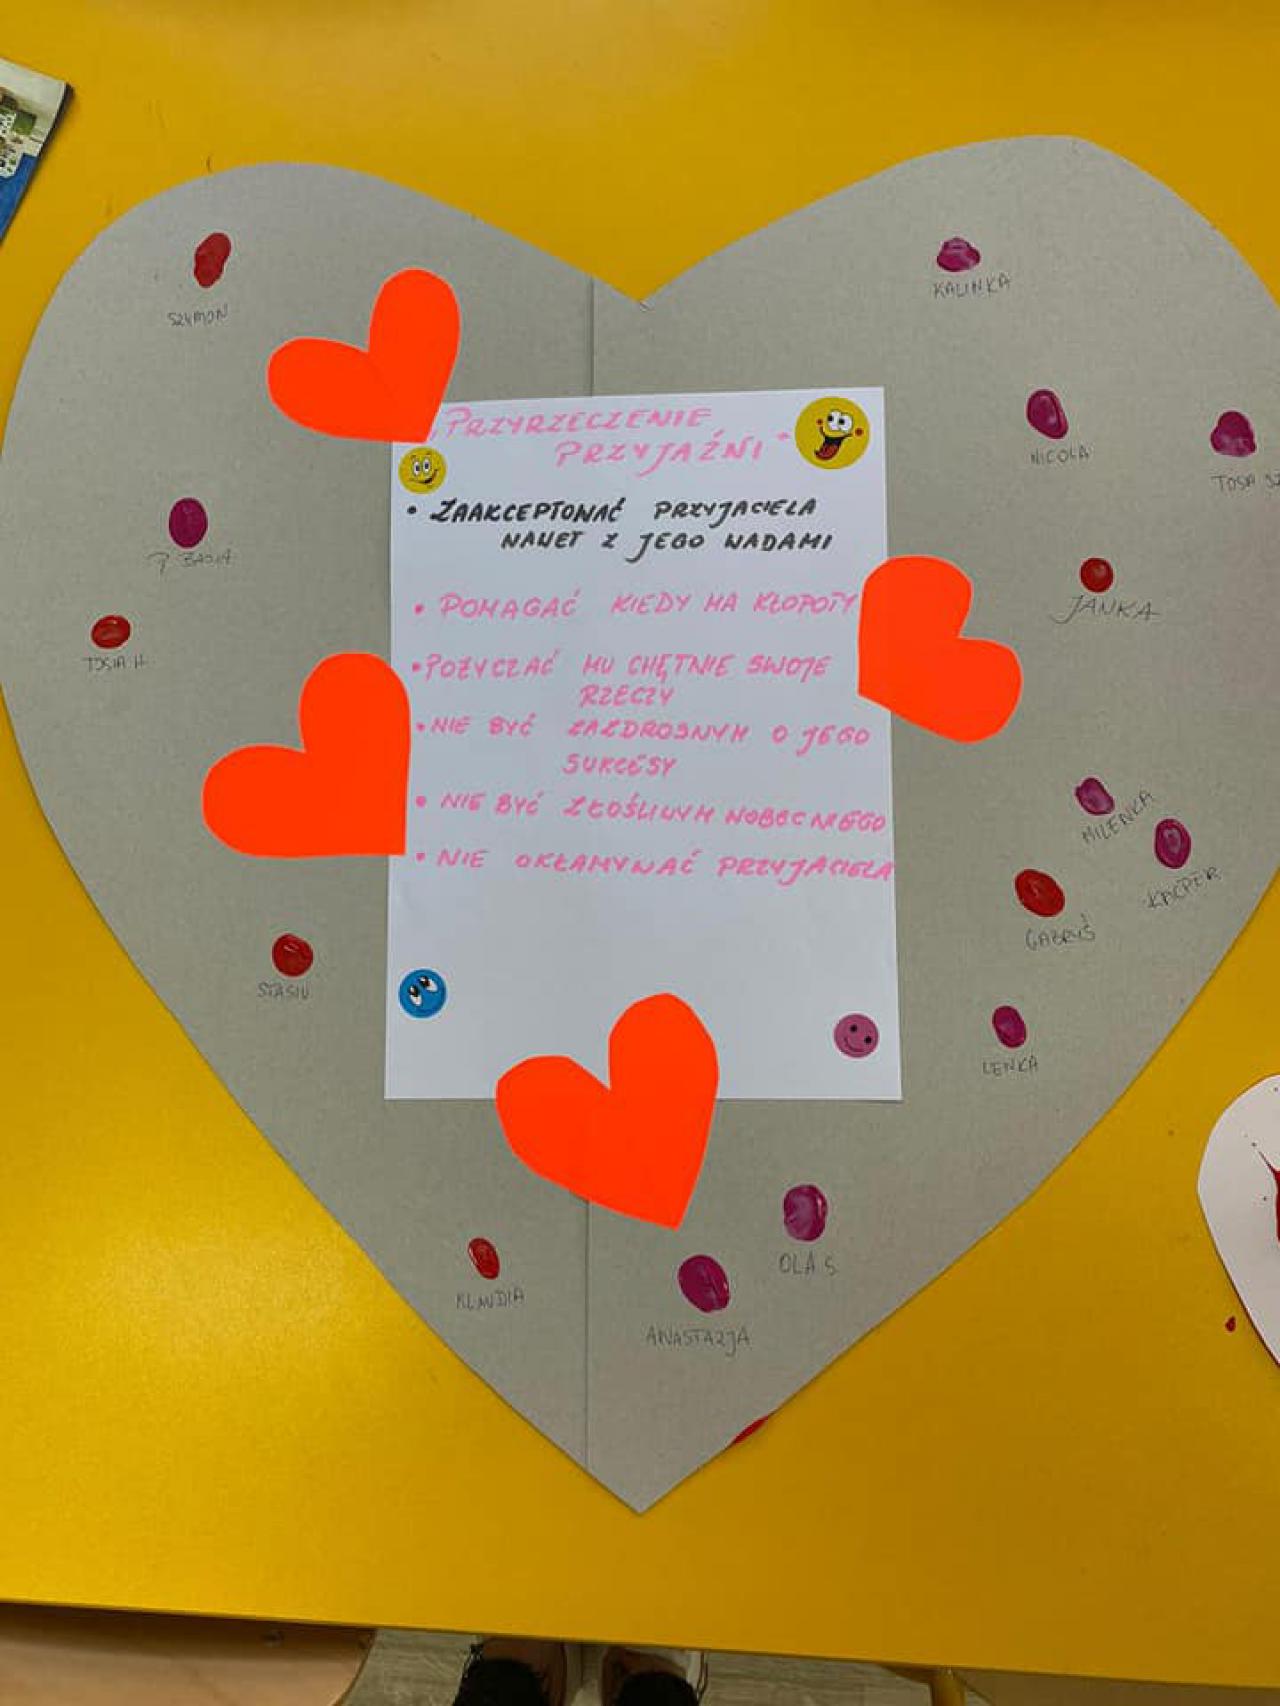 „PRZYRZECZENIE
PRZYJAŹNI"
• ZAAKCEPTOWAĆ PRZYJACIELA
NAWET Z JEGO WADAMI
• POMAGAĆ KIEDY MA KŁOPOTY
• POŻYCZAĆ MU CHĘTNIE SWOJE
RZECZY
• NIE BYĆ ZAZDROSNYM O JEGO
SUKCESY
• NIE BYĆ ZŁOŚLIWYM WOBEC NIEGO
• NIE OKŁAMYWAĆ PRZYJACIELA
SZYMON
KALINKA
NICOLA
TOSA SZ
P. BASIA
JANKA
TOSIA H.
MILENKA
KACPER
GABRYŚ
STASIU
LENKA
OLA S
KLAUDIA
ANASTAZJA